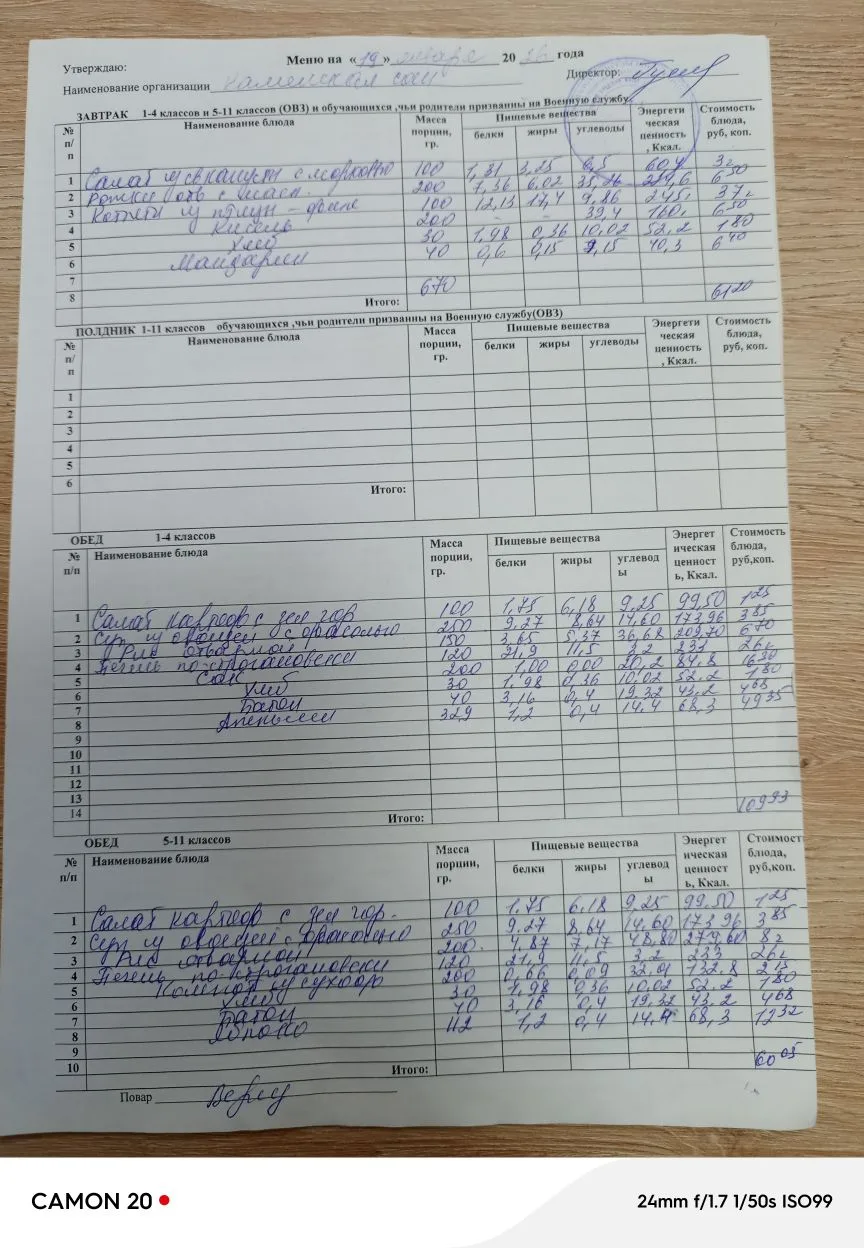 Утверждаю: Меню на «19» января 20 26 года
Наименование организации Каменская сош Директор:
ЗАВТРАК 1-4 классов и 5-11 классов (ОВЗ) и обучающихся ,чьи родители призванны на Военную службу
№ п/п Наименование блюда Масса порции, гр. Пищевые вещества белки жиры углеводы Энергети ческая ценность , Ккал. Стоимость блюда, руб, коп.
1 Салат из капусты с морковью 100 1,31 3,25 6,5 60,4
2 Рожки отв с масл. 200 7,36 6,02 35,26 6 50
3 Котлеты из 100 12,13 17,4 9,86 245,
4 Кисель 200 - - 39,4 160, 6 50
5 Хлеб 30 1,98 0,36 10,02 52,2 1 80
6 Мандарин 40 0,6 0,15 9,15 40,3 6 40
7
8 Итого: 670 61 20
ПОЛДНИК 1-11 классов обучающихся ,чьи родители призванны на Военную службу(ОВЗ)
№ п/п Наименование блюда Масса порции, гр. Пищевые вещества белки жиры углеводы Энергети ческая ценность , Ккал. Стоимость блюда, руб, коп.
1
2
3
4
5
6
Итого:
ОБЕД 1-4 классов
№ п/п Наименование блюда Масса порции, гр. Пищевые вещества белки жиры углевод ы Энергет ическая ценност ь, Ккал. Стоимость блюда, руб,коп.
1 Салат картоф с зел гор 100 1,75 6,18 9,25 99,50 1 25
2 Суп из овощей с фасолью 250 9,27 8,64 14,60 173,96 3 85
3 Рис отварной 150 3,65 5,37 36,68 209,70 6 70
4 Печень по-строгановски 120 21,9 11,5 3,2 233
5 Сок 200 1,00 0,00 20,2 84,8
6 Хлеб 30 1,98 0,36 10,02 52,2 1 80
7 Батон 40 3,16 0,4 19,32 43,2 4 68
8 Апельсин 329 1,2 0,4 14,4 68,3 49 35
9
10
11
12
13
14 Итого: 109 93
ОБЕД 5-11 классов
№ п/п Наименование блюда Масса порции, гр. Пищевые вещества белки жиры углевод ы Энергет ическая ценност ь, Ккал. Стоимост блюда, руб,коп.
1 Салат картоф с зел гор. 100 1,75 6,18 9,25 99,50 1 25
2 Суп из овощей с фасолью 250 9,27 8,64 14,60 173,96 3 85
3 Рис отварной 200. 4,87 7,17 48,80 279,60
4 Печень по-строгановски 120 21,9 11,5 3,2 233
5 Компот из сухофр 200 0,66 0,09 32,01 132,8 2 15
6 Хлеб 30 1,98 0,36 10,02 52,2 1 80
7 Батон 40 3,16 0,4 19,32 43,2 4 68
8 Яблоко 112 1,2 0,4 14,4 68,3 12 32
9
10 Итого: 60 05
Повар
CAMON 20 24mm f/1.7 1/50s ISO99